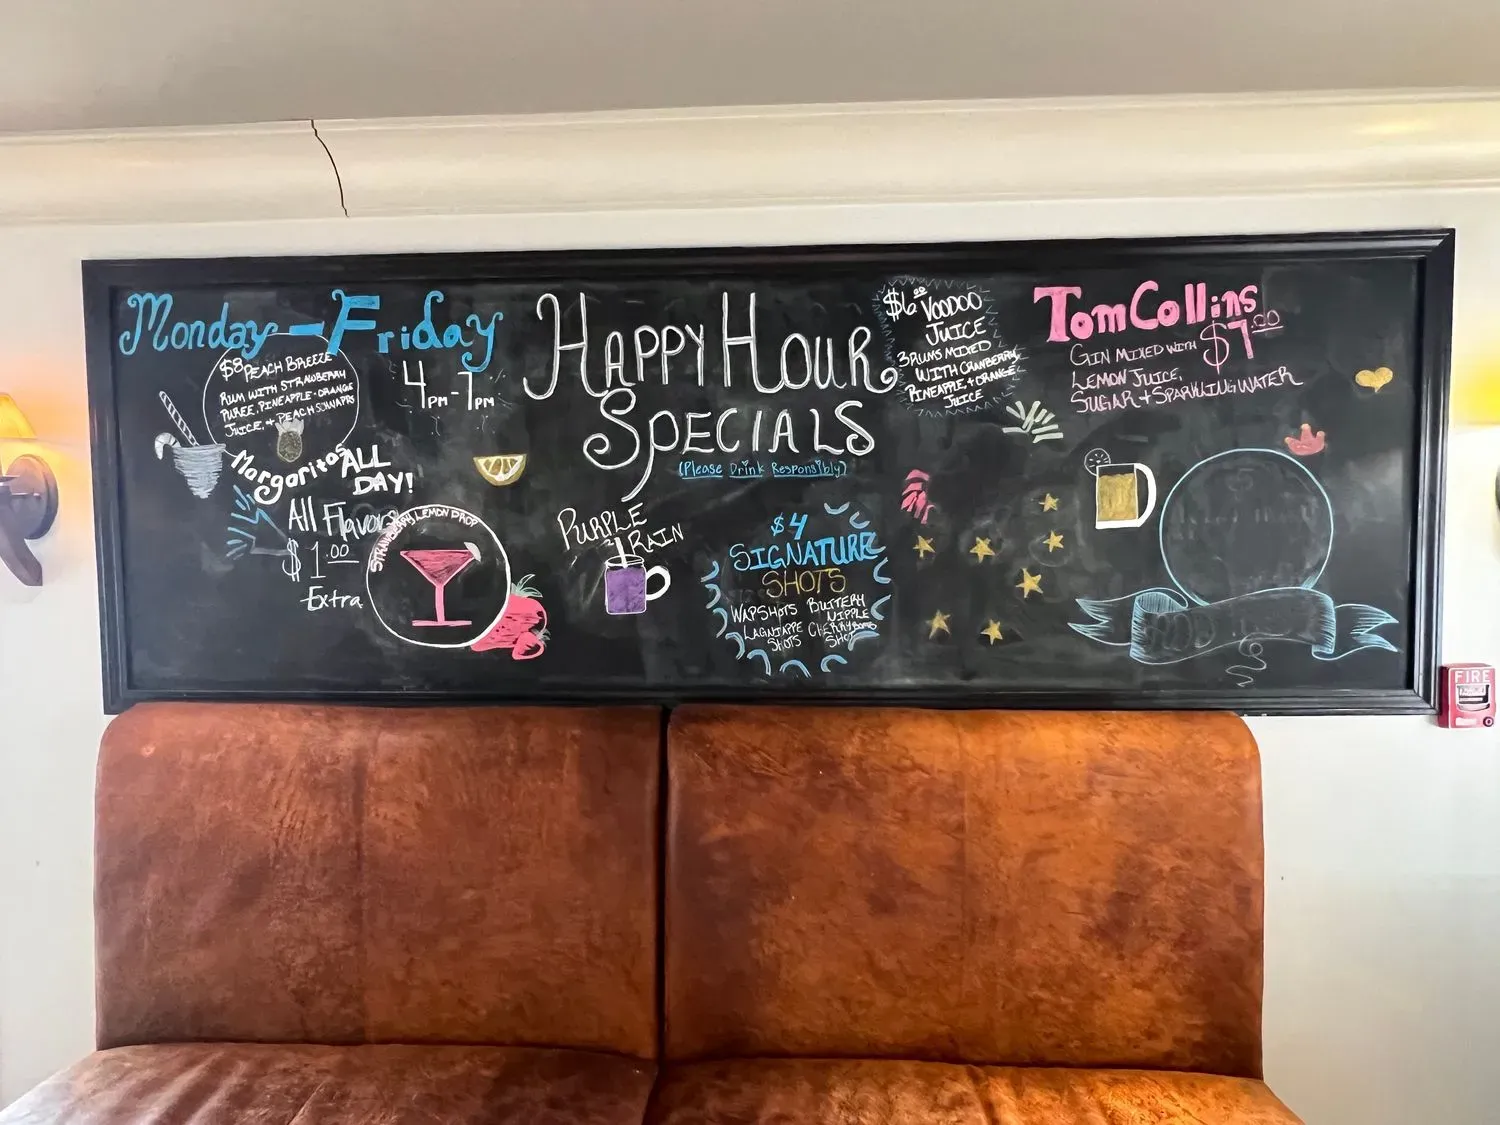 Monday - Friday
4PM - 7PM
$8 PEACH BREEZE
RUM WITH STRAWBERRY
PUREE, PINEAPPLE - ORANGE
JUICE, + PEACH SCHNAPPS
Margaritas ALL
DAY!
All Flavors
$1.00
Extra
STRAWBERRY LEMON DROP
HAPPY HOUR
SPECIALS
(Please Drink Responsibly)
PURPLE
RAIN
$4
SIGNATURE
SHOTS
WAPSHOTS BUTTERY
NIPPLE
LAGNIAPPE CHERRYBOMB
SHOTS SHOT
$6.00 VOODOO
JUICE
3 RUMS MIXED
WITH CRANBERRY,
PINEAPPLE, + ORANGE
JUICE
Tom Collins
GIN MIXED WITH $7.00
LEMON JUICE,
SUGAR + SPARKLING WATER
FIRE